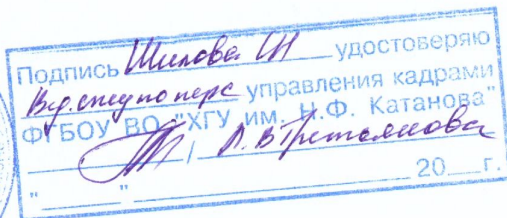 Подпись Шилова СН удостоверяю
Вед. спец по перс управления кадрами
ФГБОУ ВО "ХГУ им. Н.Ф. Катанова"
/ Л.В
" " 20 г.